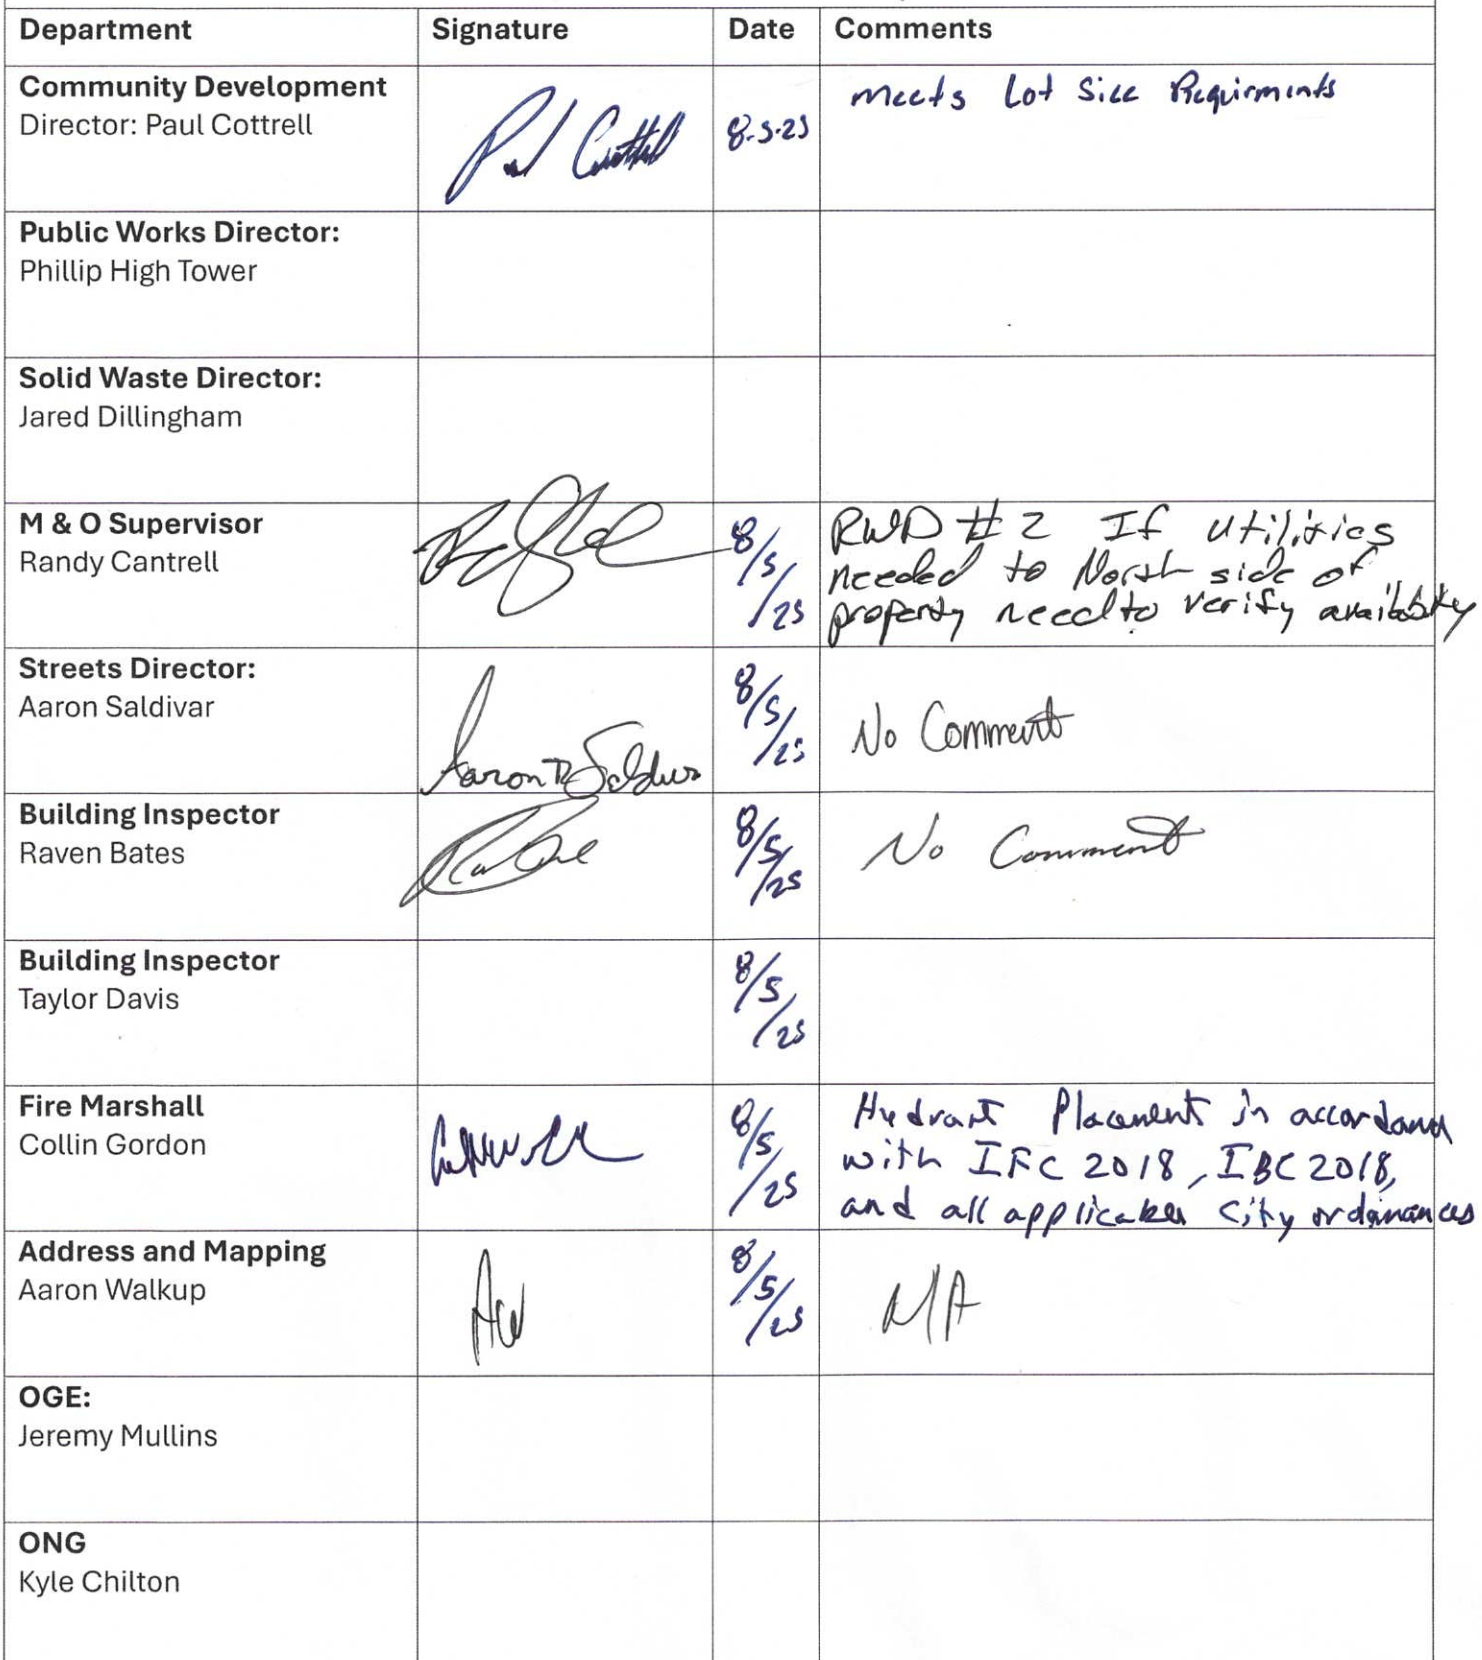 Department Signature Date Comments
Community Development
Director: Paul Cottrell
Paul Cottrell
8-5-25
Meets Lot Size Requirments
Public Works Director:
Phillip High Tower
Solid Waste Director:
Jared Dillingham
M & O Supervisor
Randy Cantrell
8/5/25
RWD #2 If utilities
needed to North side of
property need to verify availability
Streets Director:
Aaron Saldivar
Aaron Saldivar
8/5/25
No Comment
Building Inspector
Raven Bates
8/5/25
No Comment
Building Inspector
Taylor Davis
8/5/25
Fire Marshall
Collin Gordon
8/5/25
Hydrant Placement in accordance
with IFC 2018, IBC 2018,
and all applicable City ordinances
Address and Mapping
Aaron Walkup
AW
8/5/25
N/A
OGE:
Jeremy Mullins
ONG
Kyle Chilton